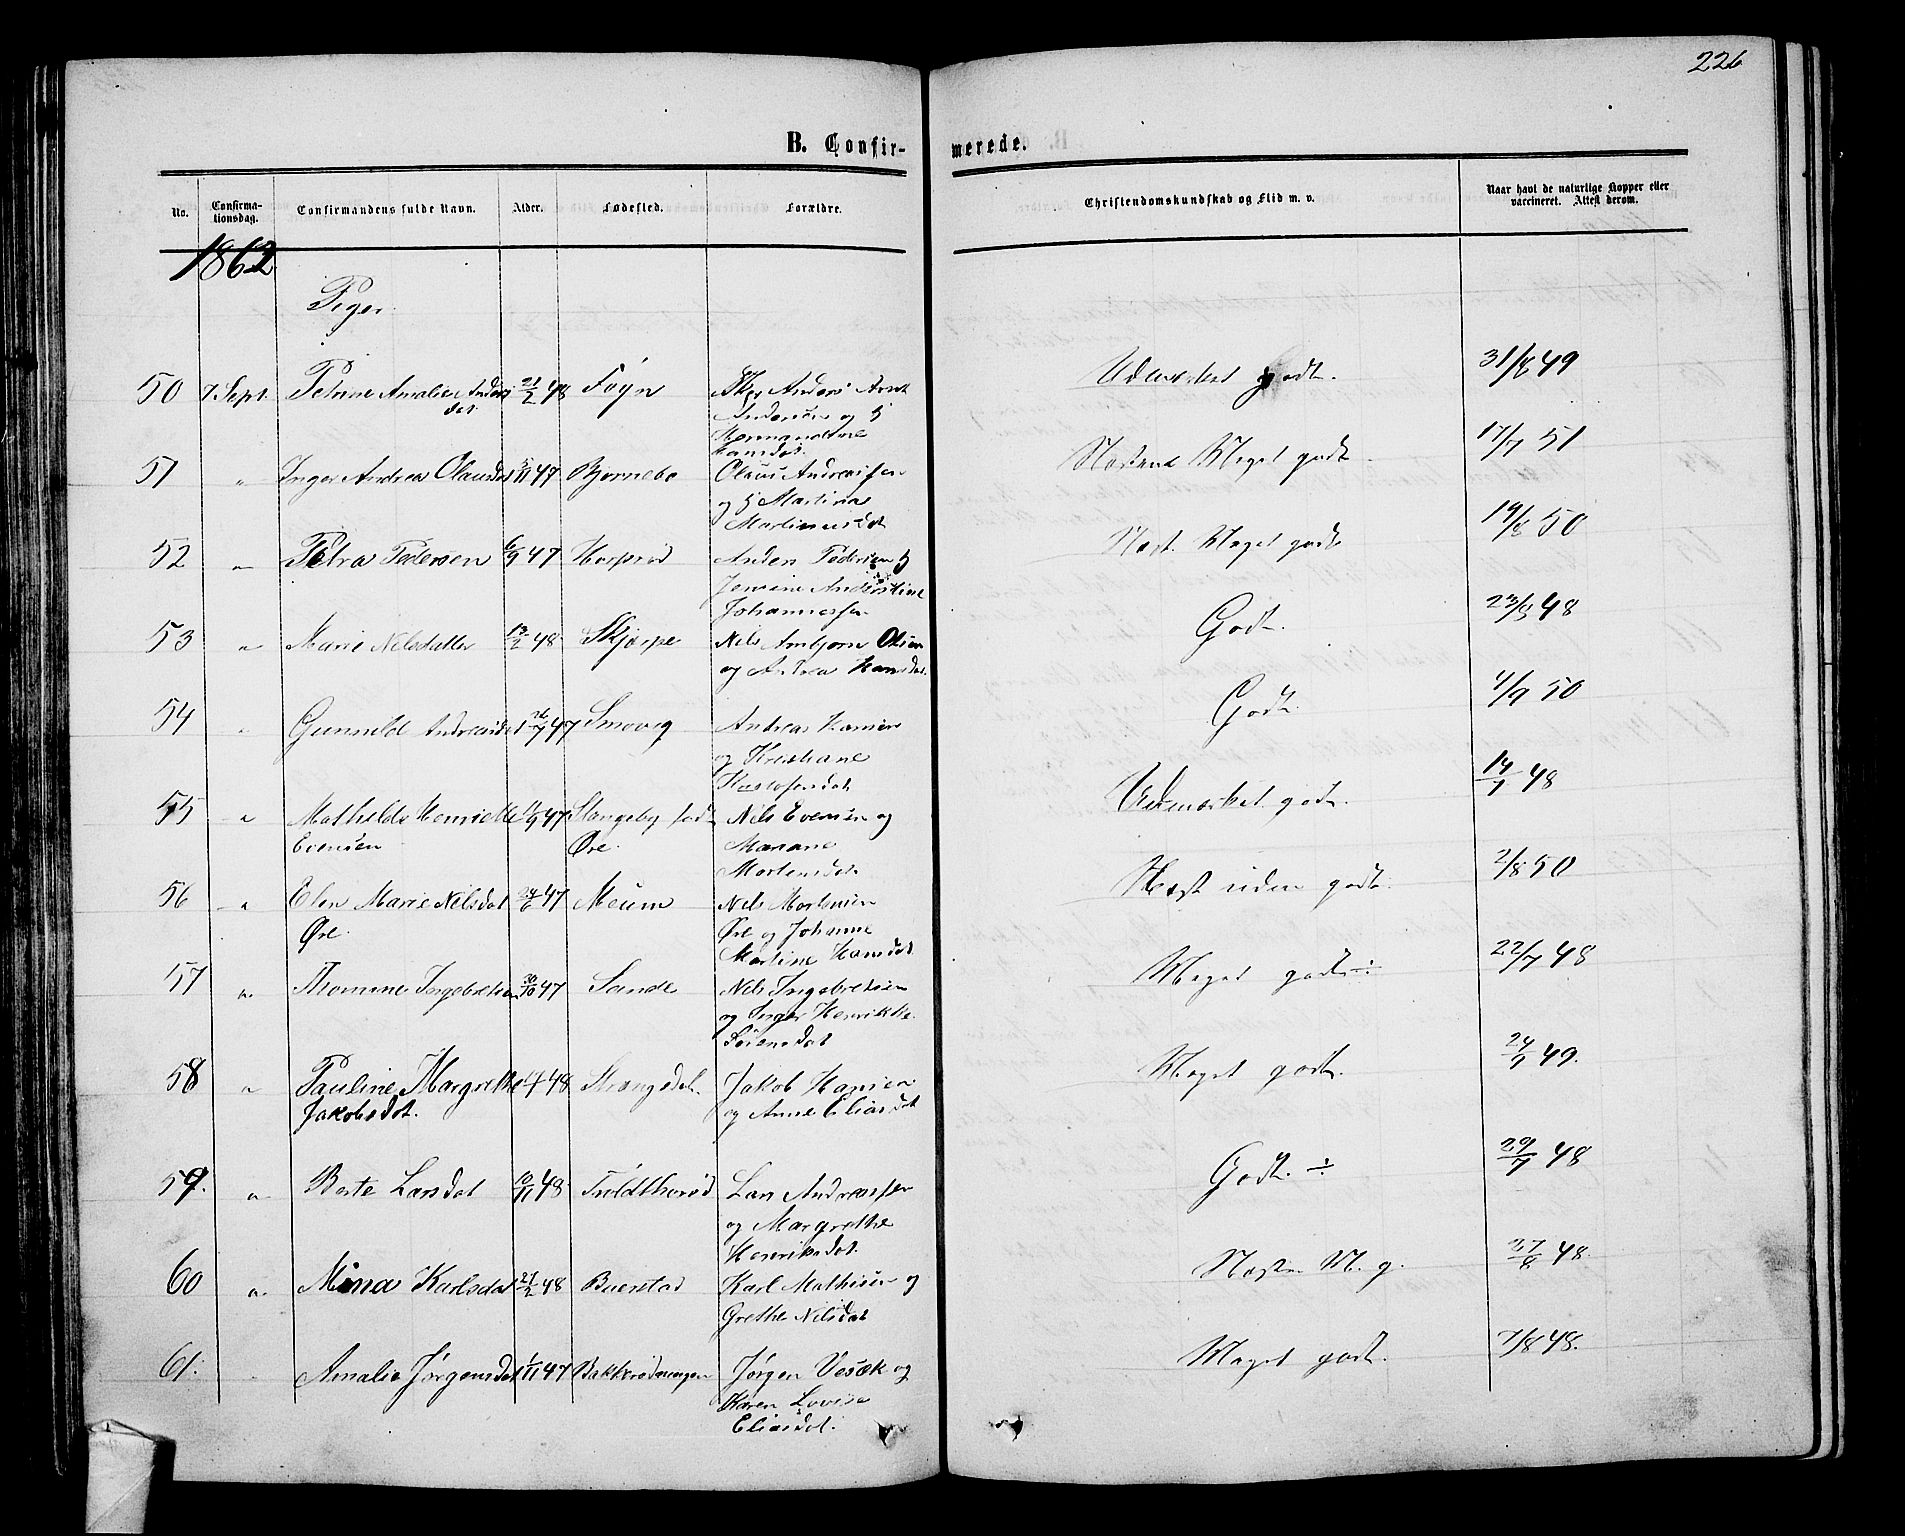 226
B. Confir- merede.
No. Confirma-tionsdag. Confirmandens fulde Navn. Alder. Fødested. Forældre. Christendomskundskab og Flid m. v. Naar havt de naturlige Kopper eller vaccineret. Attest derom.
1862
Piger.
50 7 Sept. Petrine Amalie Anders 21/2 48 Føyn Anders Arnt Udmærket godt. 31/8 49
dat. Andersen og
Hermandine
Hansdat.
51 " Inger Andrea Olausdat 5/11 47 Bjørnebo Olaus Andreassen Næsten Meget godt 17/7 51
og Martine
Martinusdat
52 " Petra Pedersen 6/9 47 Horperød Anders Pedersen Næst. Meget godt 19/8 50
Andrestine
Johannessen
53 " Marie Nilsdatter 13/2 48. Skjærpe Nils Ambjørn Olsen Godt. 23/8 48
og Andrea Hansdat.
54 " Gunnild Andreasdat 47 Smovig Andreas Hansen Godt. 4/9 50
og Kristiane
Kristofersdat
55 " Mathilde Henriette 11/9 47 Stangeby fød Nils Evensen og Udmærket godt. 14/7 48
Evensen Øre. Mariane
Mortensdat.
56 " Elen Marie Nilsdat 24/6 47 Meum Nils Mortensen Næst uden godt. 2/8 50
Øre. Øre og Johanne
Martine Hansdat
57 " Thomine Ingebretsen 30/10 47 Sande Nils Ingebretsen Meget godt ÷ 22/7 48
og Inger Henrikke
Sørensdat
58 " Pauline Margrethe 1/4 48 Strengsdal. Jakob Hansen Meget godt. 24/9 49.
Jakobsdat. og Anne Eliasdat
59. " Berte Larsdat 10/11 48 Lars Andreassen Godt. ÷ 29/7 48
og Margrethe
Henriksdat.
60 " Mina Karlsdat 21/2 48 Buerstad Karl Mathisen og Næsten M. g. 27/8 48.
Grethe Nilsdat
61. " Amalie Jørgensdat 1/11 47 Bakkerødningen Jørgen Vesæk og Meget godt. 7/8 48.
Karen Lovise
Eliasdat.